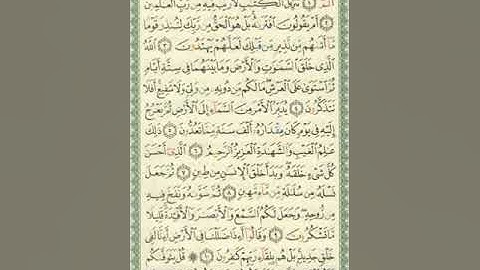 الٓمٓ ۝١ تَنزِيلُ ٱلْكِتَٰبِ لَا رَيْبَ فِيهِ مِن رَّبِّ ٱلْعَٰلَمِينَ
۝٢ أَمْ يَقُولُونَ ٱفْتَرَىٰهُ بَلْ هُوَ ٱلْحَقُّ مِن رَّبِّكَ لِتُنذِرَ قَوْمًا
مَّآ أَتَىٰهُم مِّن نَّذِيرٍ مِّن قَبْلِكَ لَعَلَّهُمْ يَهْتَدُونَ ۝٣ ٱللَّهُ
ٱلَّذِى خَلَقَ ٱلسَّمَٰوَٰتِ وَٱلْأَرْضَ وَمَا بَيْنَهُمَا فِى سِتَّةِ أَيَّامٍ
ثُمَّ ٱسْتَوَىٰ عَلَى ٱلْعَرْشِ مَا لَكُم مِّن دُونِهِۦ مِن وَلِىٍّ وَلَا شَفِيعٍ أَفَلَا
تَتَذَكَّرُونَ ۝٤ يُدَبِّرُ ٱلْأَمْرَ مِنَ ٱلسَّمَآءِ إِلَى ٱلْأَرْضِ ثُمَّ يَعْرُجُ
إِلَيْهِ فِى يَوْمٍ كَانَ مِقْدَارُهُۥٓ أَلْفَ سَنَةٍ مِّمَّا تَعُدُّونَ ۝٥ ذَٰلِكَ
عَٰلِمُ ٱلْغَيْبِ وَٱلشَّهَٰدَةِ ٱلْعَزِيزُ ٱلرَّحِيمُ ۝٦ ٱلَّذِىٓ أَحْسَنَ
كُلَّ شَىْءٍ خَلَقَهُۥ وَبَدَأَ خَلْقَ ٱلْإِنسَٰنِ مِن طِينٍ ۝٧ ثُمَّ جَعَلَ
نَسْلَهُۥ مِن سُلَٰلَةٍ مِّن مَّآءٍ مَّهِينٍ ۝٨ ثُمَّ سَوَّىٰهُ وَنَفَخَ فِيهِ
مِن رُّوحِهِۦ وَجَعَلَ لَكُمُ ٱلسَّمْعَ وَٱلْأَبْصَٰرَ وَٱلْأَفْـِٔدَةَ قَلِيلًا
مَّا تَشْكُرُونَ ۝٩ وَقَالُوٓا۟ أَءِذَا ضَلَلْنَا فِى ٱلْأَرْضِ أَءِنَّا لَفِى
خَلْقٍ جَدِيدٍۭ بَلْ هُم بِلِقَآءِ رَبِّهِمْ كَٰفِرُونَ ۝١٠ ۞ قُلْ يَتَوَفَّىٰكُم